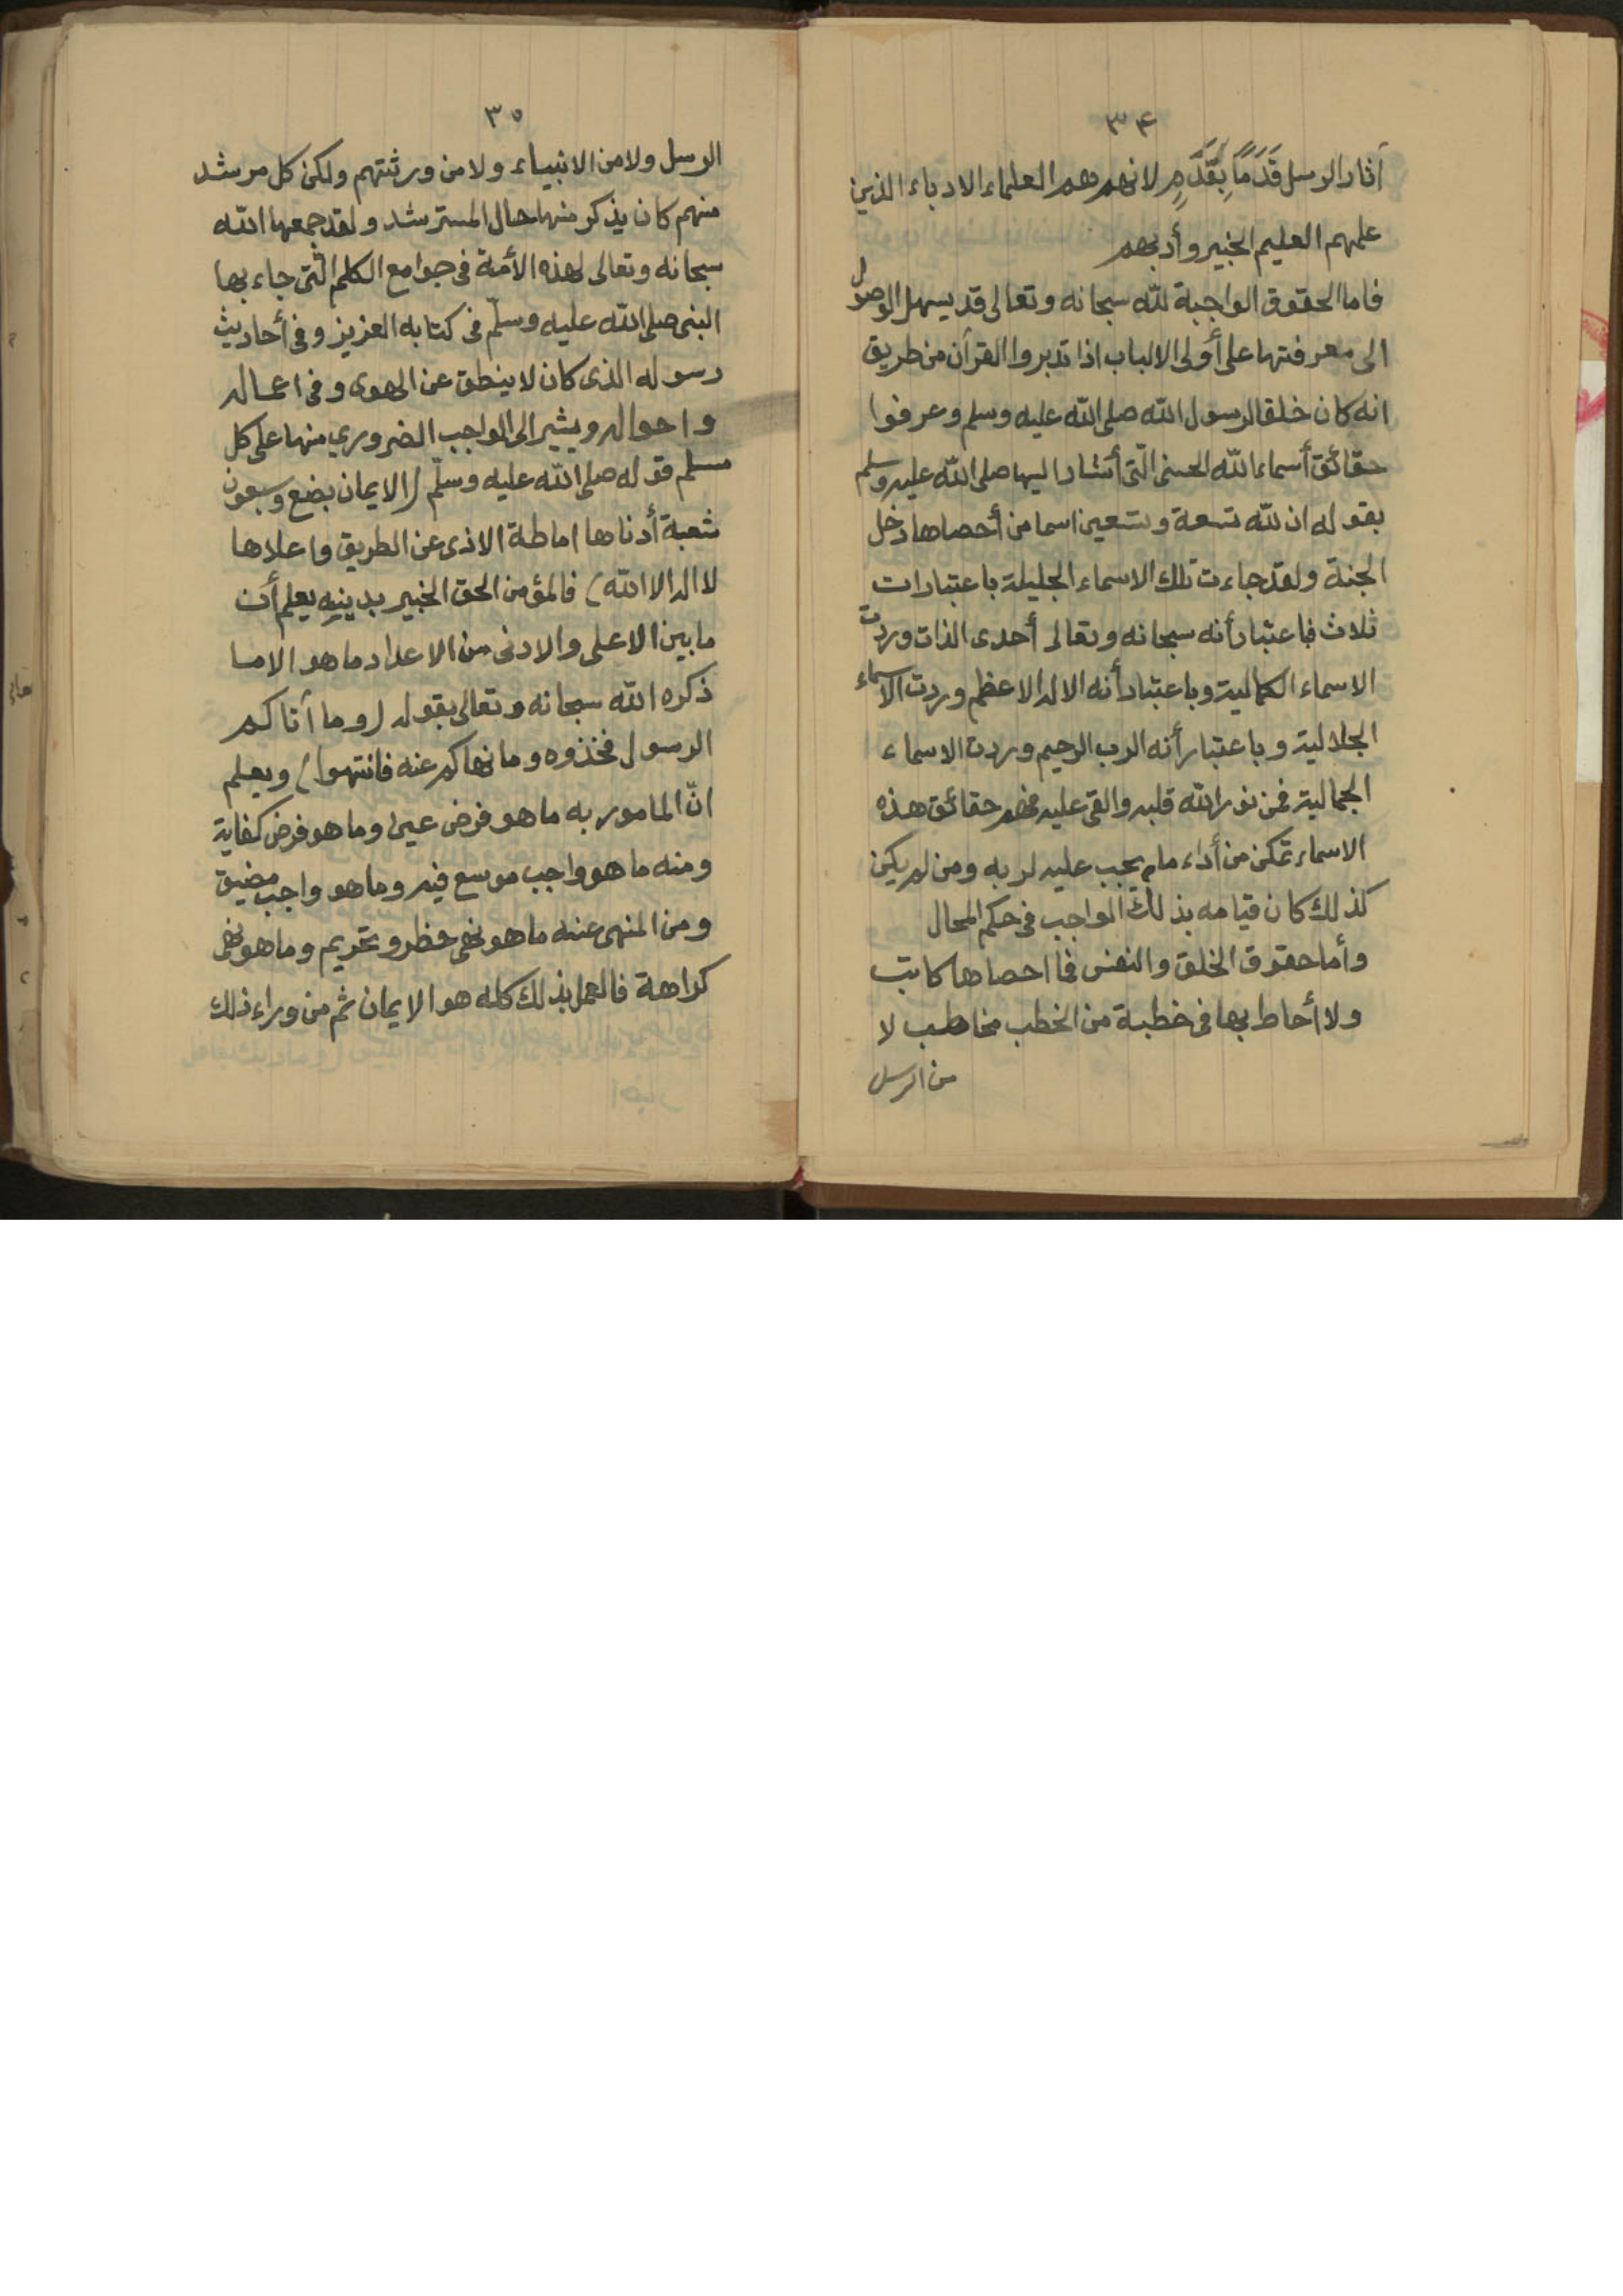 ٣٤
آثار الرسل قَدَمًا بِقَدَمٍ لانهم هم العلماء الادباء الذين
علمهم العليم الخبير وأدبهم
فاما الحقوق الواجبة لله سبحانه وتعالى قد يسهل الوصول
الى معرفتها على أولى الالباب اذا تدبروا القرآن من طريق
انه كان خلقا لرسول الله صلى الله عليه وسلم وعرفوا
حقائق أسماء الله الحسنى التى أشار اليها صلى الله عليه وسلم
بقوله ان لله تسعة وتسعين اسما من أحصاها دخل
الجنة ولقد جاءت تلك الاسماء الجليلة باعتبارات
ثلاث فباعتبار أنه سبحانه وتعالى أحدى الذات وردت
الاسماء الكمالية وباعتبار أنه الاله الاعظم وردت الاسماء
الجلالية وباعتبار أنه الرب الرحيم وردت الاسماء
الجمالية فمن نور الله قلبه والقى عليه فهم حقائق هذه
الاسماء تمكن من أداء ما يجب عليه لربه ومن لم يكن
كذلك كان قيامه بذلك الواجب فى حكم المحال
وأما حقوق الخلق والنفس فما احصاها كاتب
ولا أحاط بها فى خطبة من الخطب مخاطب لا
من الرسل
٣٥
الرسل ولا من الانبياء ولا من ورثتهم ولكن كل مرشد
منهم كان يذكر منها حال المسترشد ولقد جمعها الله
سبحانه وتعالى لهذه الأمة فى جوامع الكلم التى جاء بها
النبى صلى الله عليه وسلّم فى كتابه العزيز وفى أحاديث
رسوله الذى كان لا ينطق عن الهوى وفى اعماله
واحواله ويشير الى الواجب الضرورى منها على كل
مسلم قوله صلى الله عليه وسلّم (الايمان بضع وسبعون
شعبة أدناها اماطة الاذى عن الطريق واعلاها
لا اله الا الله) فالمؤمن الحق الخبير بدينه يعلم أن
ما بين الاعلى والادنى من الاعداد ما هو الا ما
ذكره الله سبحانه وتعالى بقوله (وما آتاكم
الرسول فخذوه وما نهاكم عنه فانتهوا) ويعلم
انّ المامور به ما هو فرض عين وما هو فرض كفاية
ومنه ما هو واجب موسع فيه وما هو واجب مضيق
ومن المنهى عنه ما هو نهى حظر وتحريم وما هو نهى
كراهة فالعمل بذلك كله هو الايمان ثم من وراء ذلك